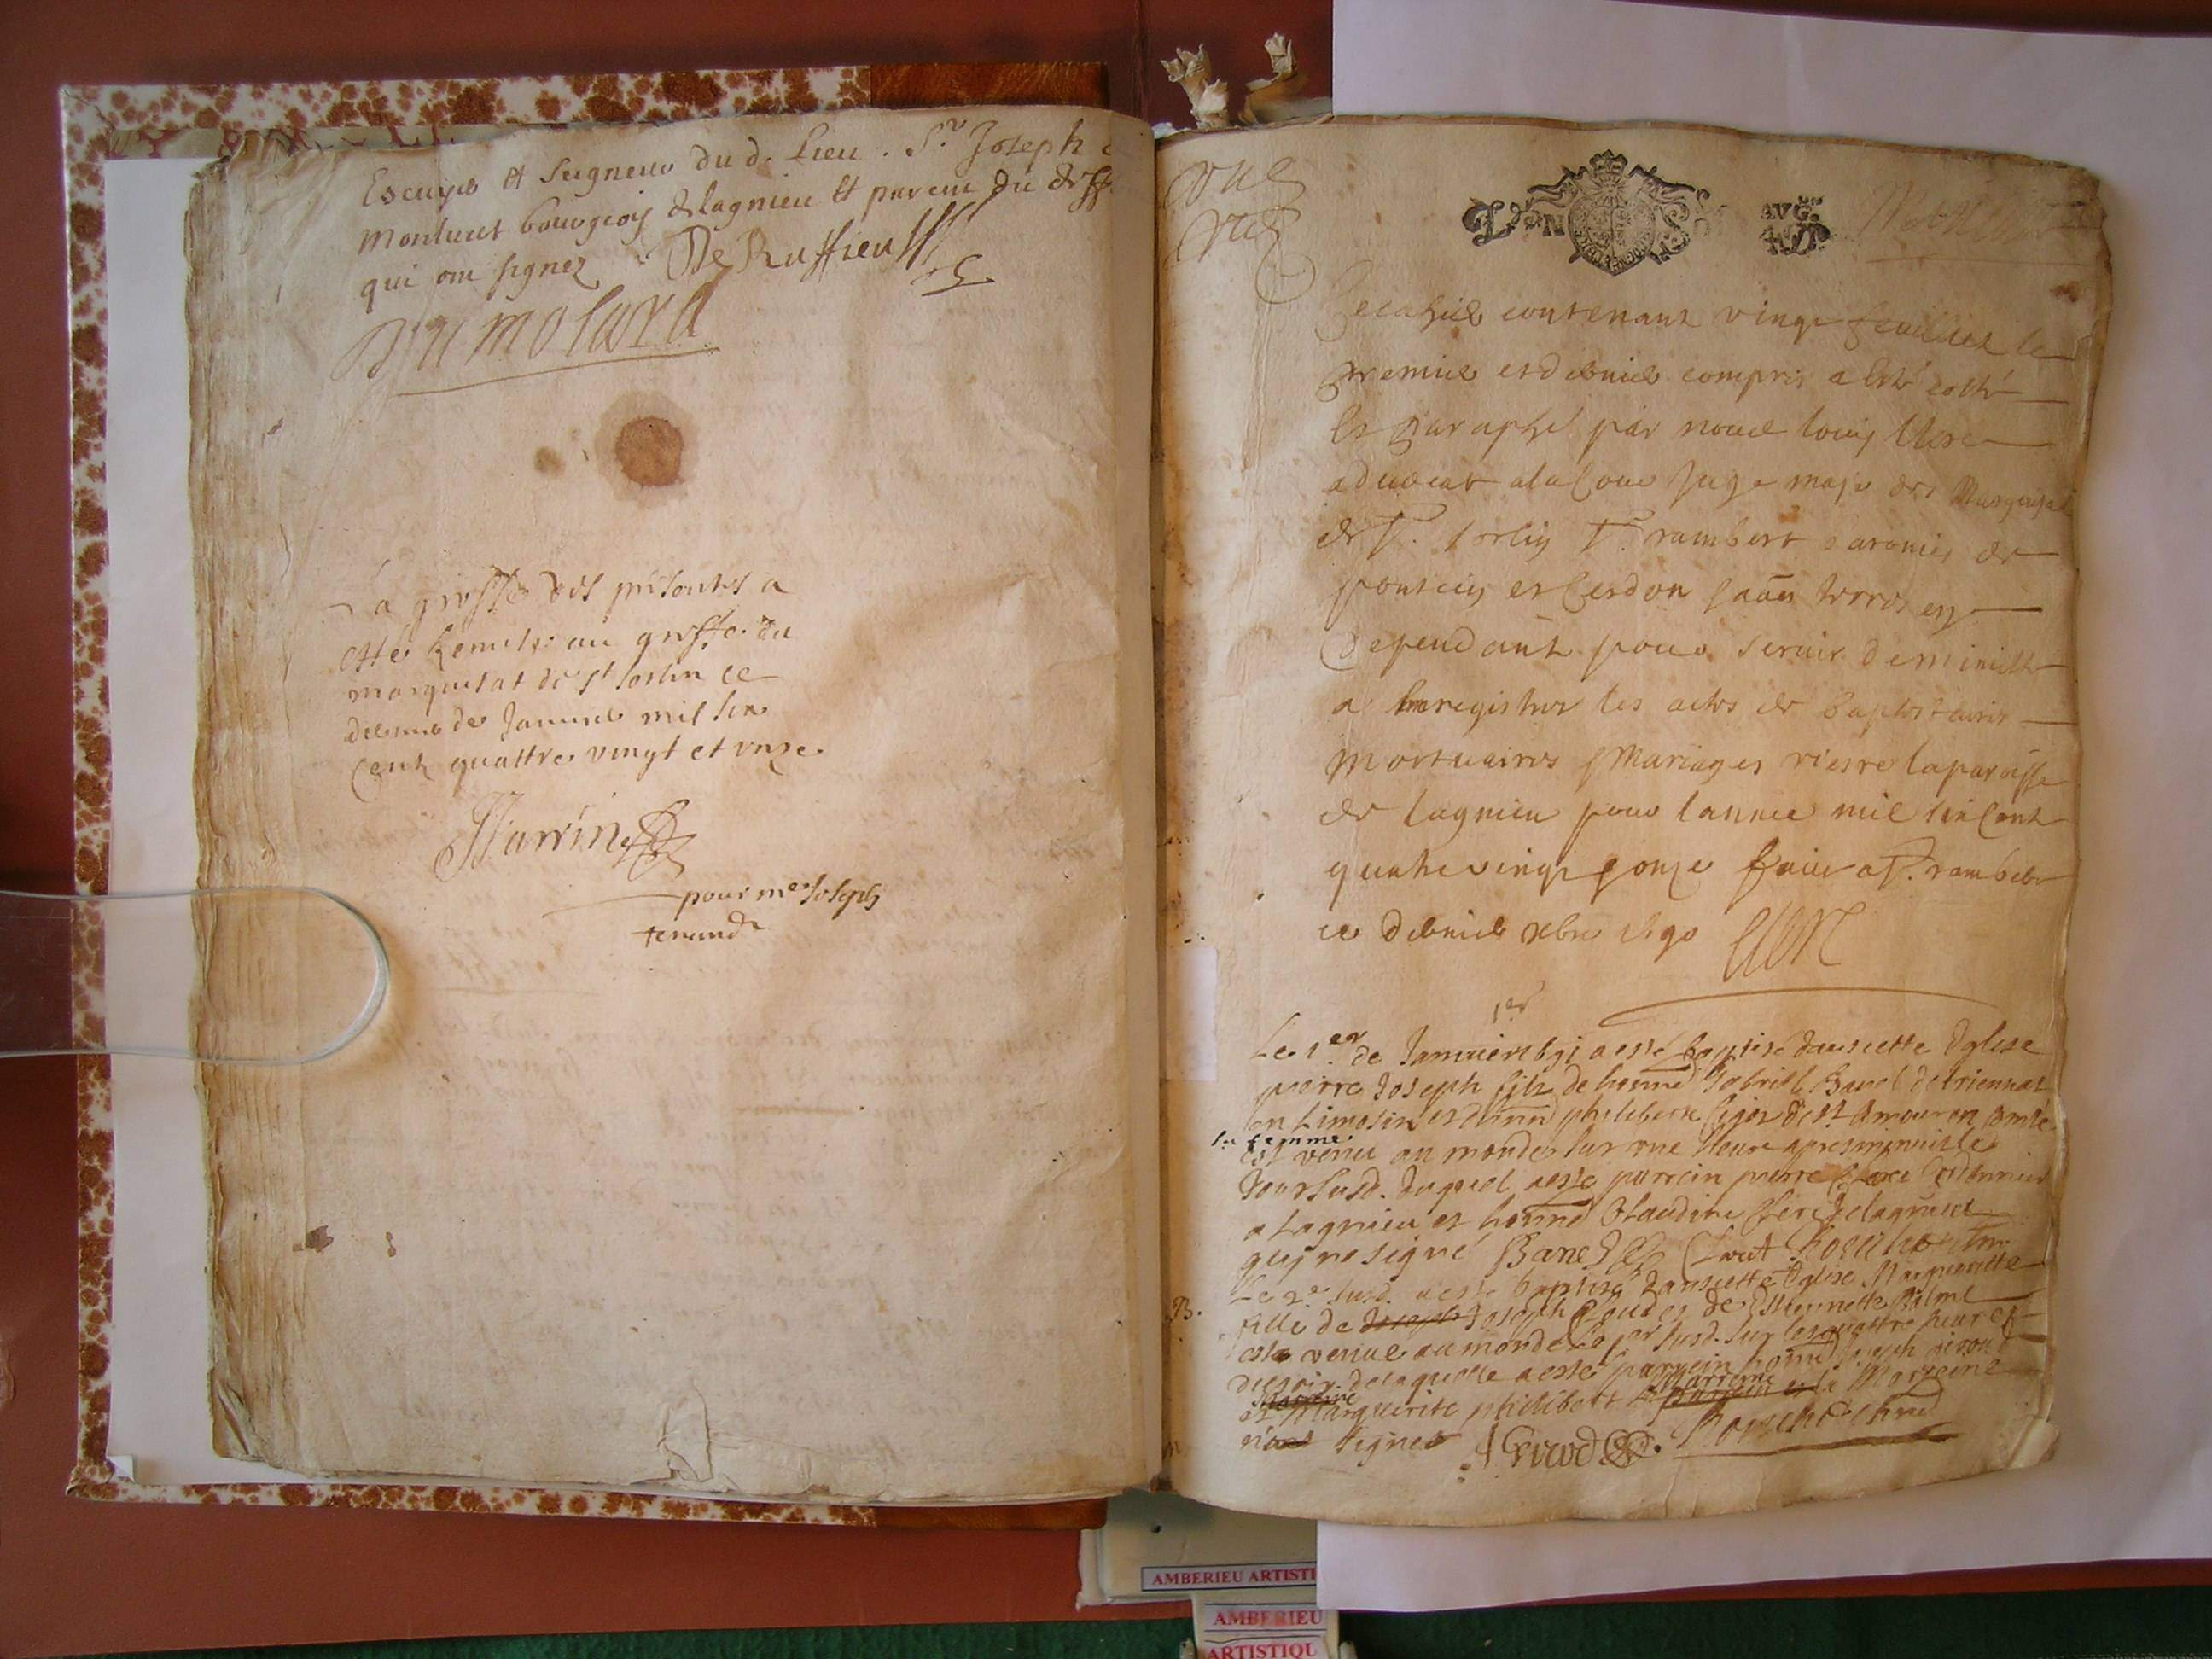 Escuyer et Seigneur du d. lieu . Sr Joseph
Montuet bourgeois de lagnieu et parent du
qui ont signez De Ruffieu
Dumolard
La grosse des présentes a
esté Remise au greffe du
marquisat de st sorlin ce
dernier de Januier mil six
cent quattre vingt et vnze.
Warrin
pour me Joseph
tenand
AVG
Ce cahier contenant vingt feuillet le
premier et dernier compris a esté cotté
et paraphé par nous louis
aduocat a la Cour juge maje des Marquisat
de St. sorlin St. rambert baronies de
poncin et Cerdon terres en
dependant pour seruir de minutte
a enregistrer les actes de baptistaires
mortuaires mariages riere la paroisse
de lagnieu pour lannee mil six cent
quatre vingt onze faict a St. rambert
ce dernier xbre 1690
1er
Le 1.er de Januier 1691 a esté baptisé dans cette Eglise
pierre Joseph filz de honné Gabriel Banel de
en Limosin et philiberte de st Amour en Comté
sa femme
est venu au monde sur vne heure apres minuict le
Jour susd. duquel a esté parrein pierre
a Lagnieu et honné Claudine de lagnieu
qui n'a signé Banel
Le 2e susd. a esté baptisé dans cette Eglise Margueritte
B.
fille de Joseph Joseph et de Estiennette Balme
este venue au monde le per susd. sur les quattre heures
du soir de laquelle a esté parrein honné Joseph
Marreine
et Marguerite philibert parrein et la Marreine
n'ont signé Girod
AMBERIEU ARTISTI
AMBERIEU
ARTISTIQU